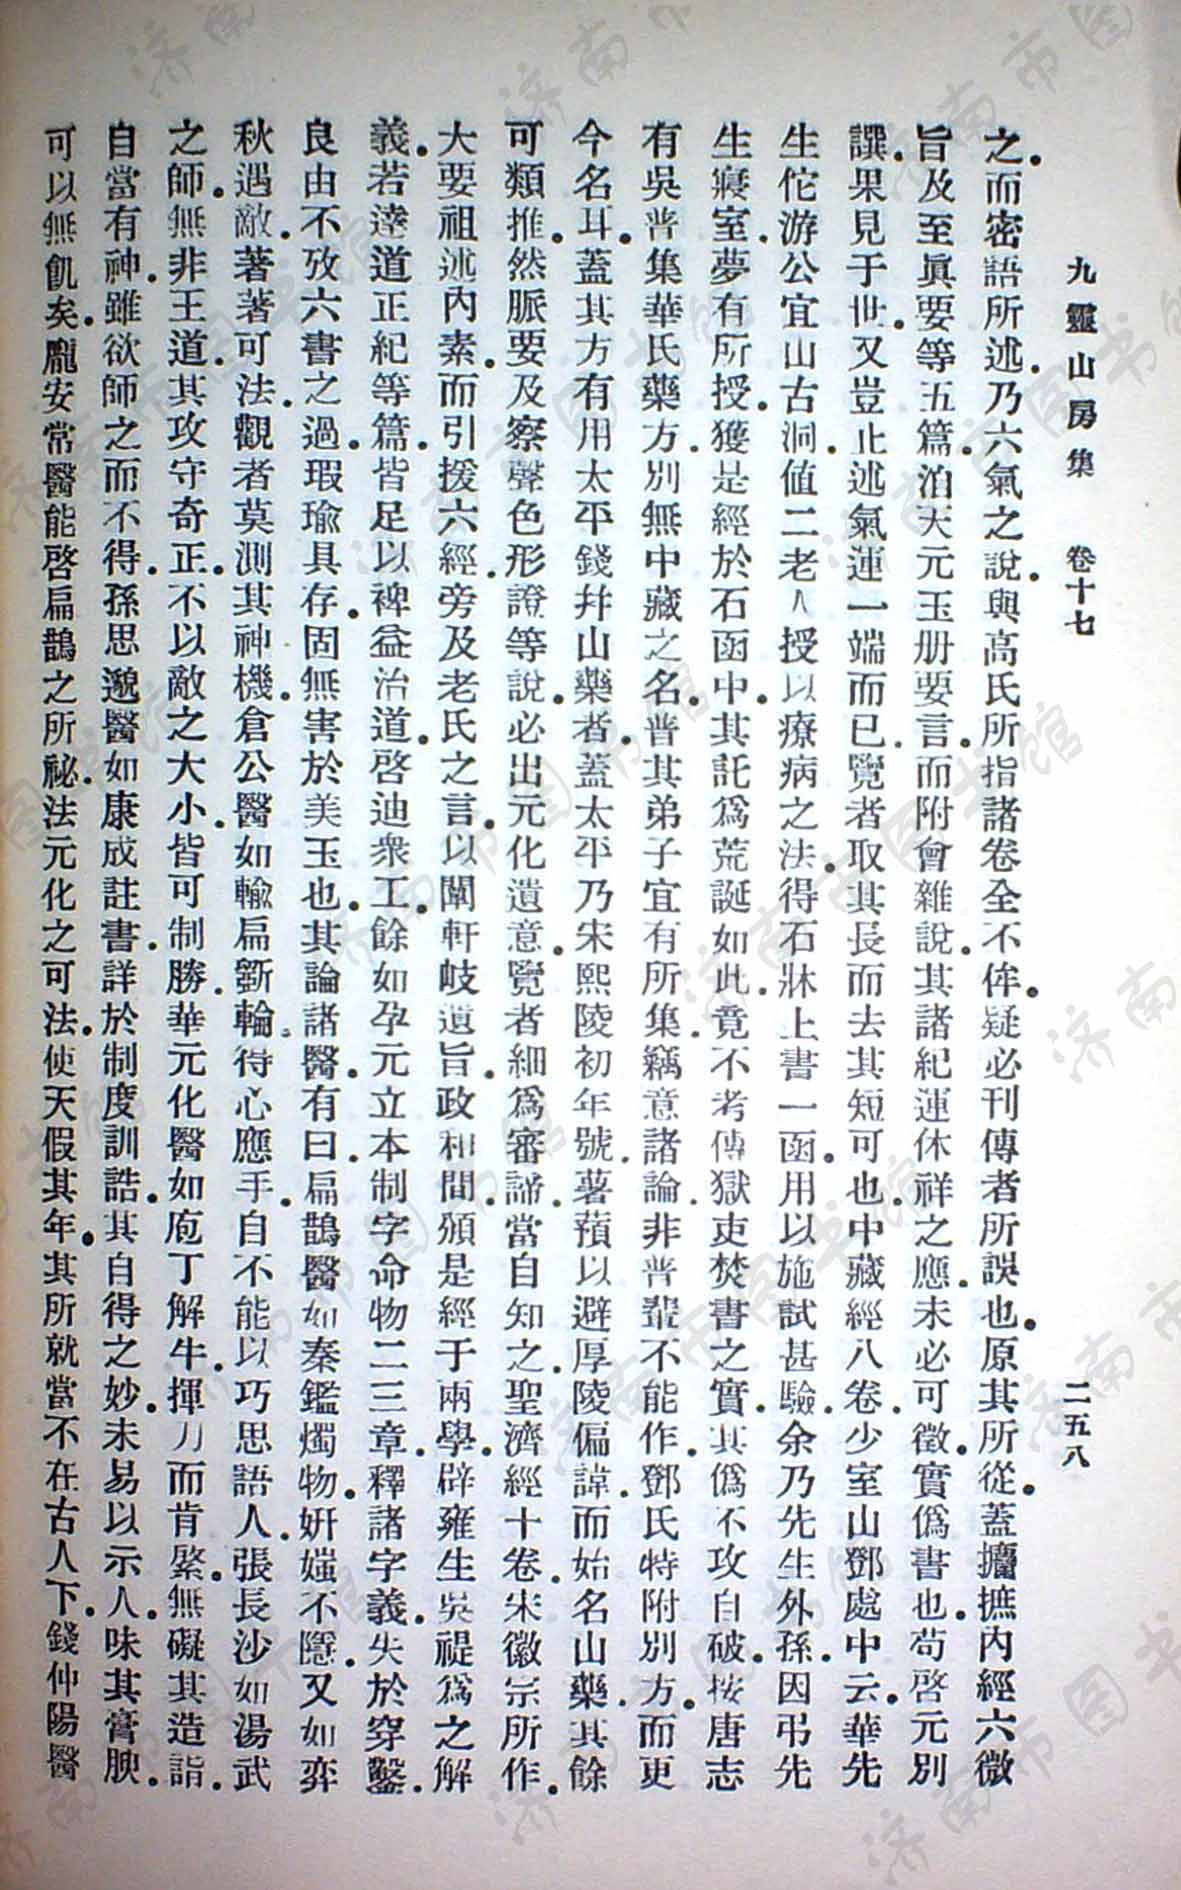 九靈山房集　卷十七　二五八
之。而密語所述。乃六氣之說。與高氏所指諸卷全不侔。疑必刊傳者所誤也。原其所從。蓋攟摭內經六微
旨。及至眞要等五篇。洎天元玉册要言。而附會雜說。其諸紀運休祥之應。未必可徵。實僞書也。苟啓元別
譔。果見于世。又豈止述氣運一端而已。覽者取其長而去其短可也。中藏經八卷。少室山鄧處中云。華先
生佗游公宜山古洞。值二老人授以療病之法。得石牀上書一函。用以施試甚驗。余乃先生外孫。因弔先
生寢室。夢有所授。獲是經於石函中。其託爲荒誕如此。竟不考傳獄吏焚書之實。其僞不攻自破。按唐志
有吳普集華氏藥方。別無中藏之名。普其弟子。宜有所集。竊意諸論。非普輩不能作。鄧氏特附別方。而更
今名耳。蓋其方有用太平錢幷山藥者。蓋太平乃宋熙陵初年號。薯蕷以避厚陵偏諱。而始名山藥。其餘
可類推。然脈要及察聲色形證等說。必出元化遺意。覽者細爲審諦。當自知之。聖濟經十卷。宋徽宗所作。
大要祖述內素。而引援六經。旁及老氏之言。以闡軒岐遺旨。政和間。頒是經于兩學。辟雍生吳禔爲之解
義。若逵道正紀等篇。皆足以裨益治道。啓迪衆工。餘如孕元立本制字命物二三章。釋諸字義。失於穿鑿。
良由不攷六書之過。瑕瑜具存。固無害於美玉也。其論諸醫。有曰。扁鵲醫如秦鑑燭物。姸媸不隱。又如弈
秋遇敵。著著可法。觀者莫測其神機。倉公醫如輸扁斵輪。得心應手。自不能以巧思語人。張長沙如湯武
之師。無非王道。其攻守奇正。不以敵之大小。皆可制勝。華元化醫如庖丁解牛。揮刀而肯綮無礙。其造詣。
自當有神。雖欲師之而不得。孫思邈醫如康成註書。詳於制度訓誥。其自得之妙。未易以示人。味其膏腴。
可以無飢矣。龐安常醫能啓扁鵲之所祕。法元化之可法。使天假其年。其所就當不在古人下。錢仲陽醫